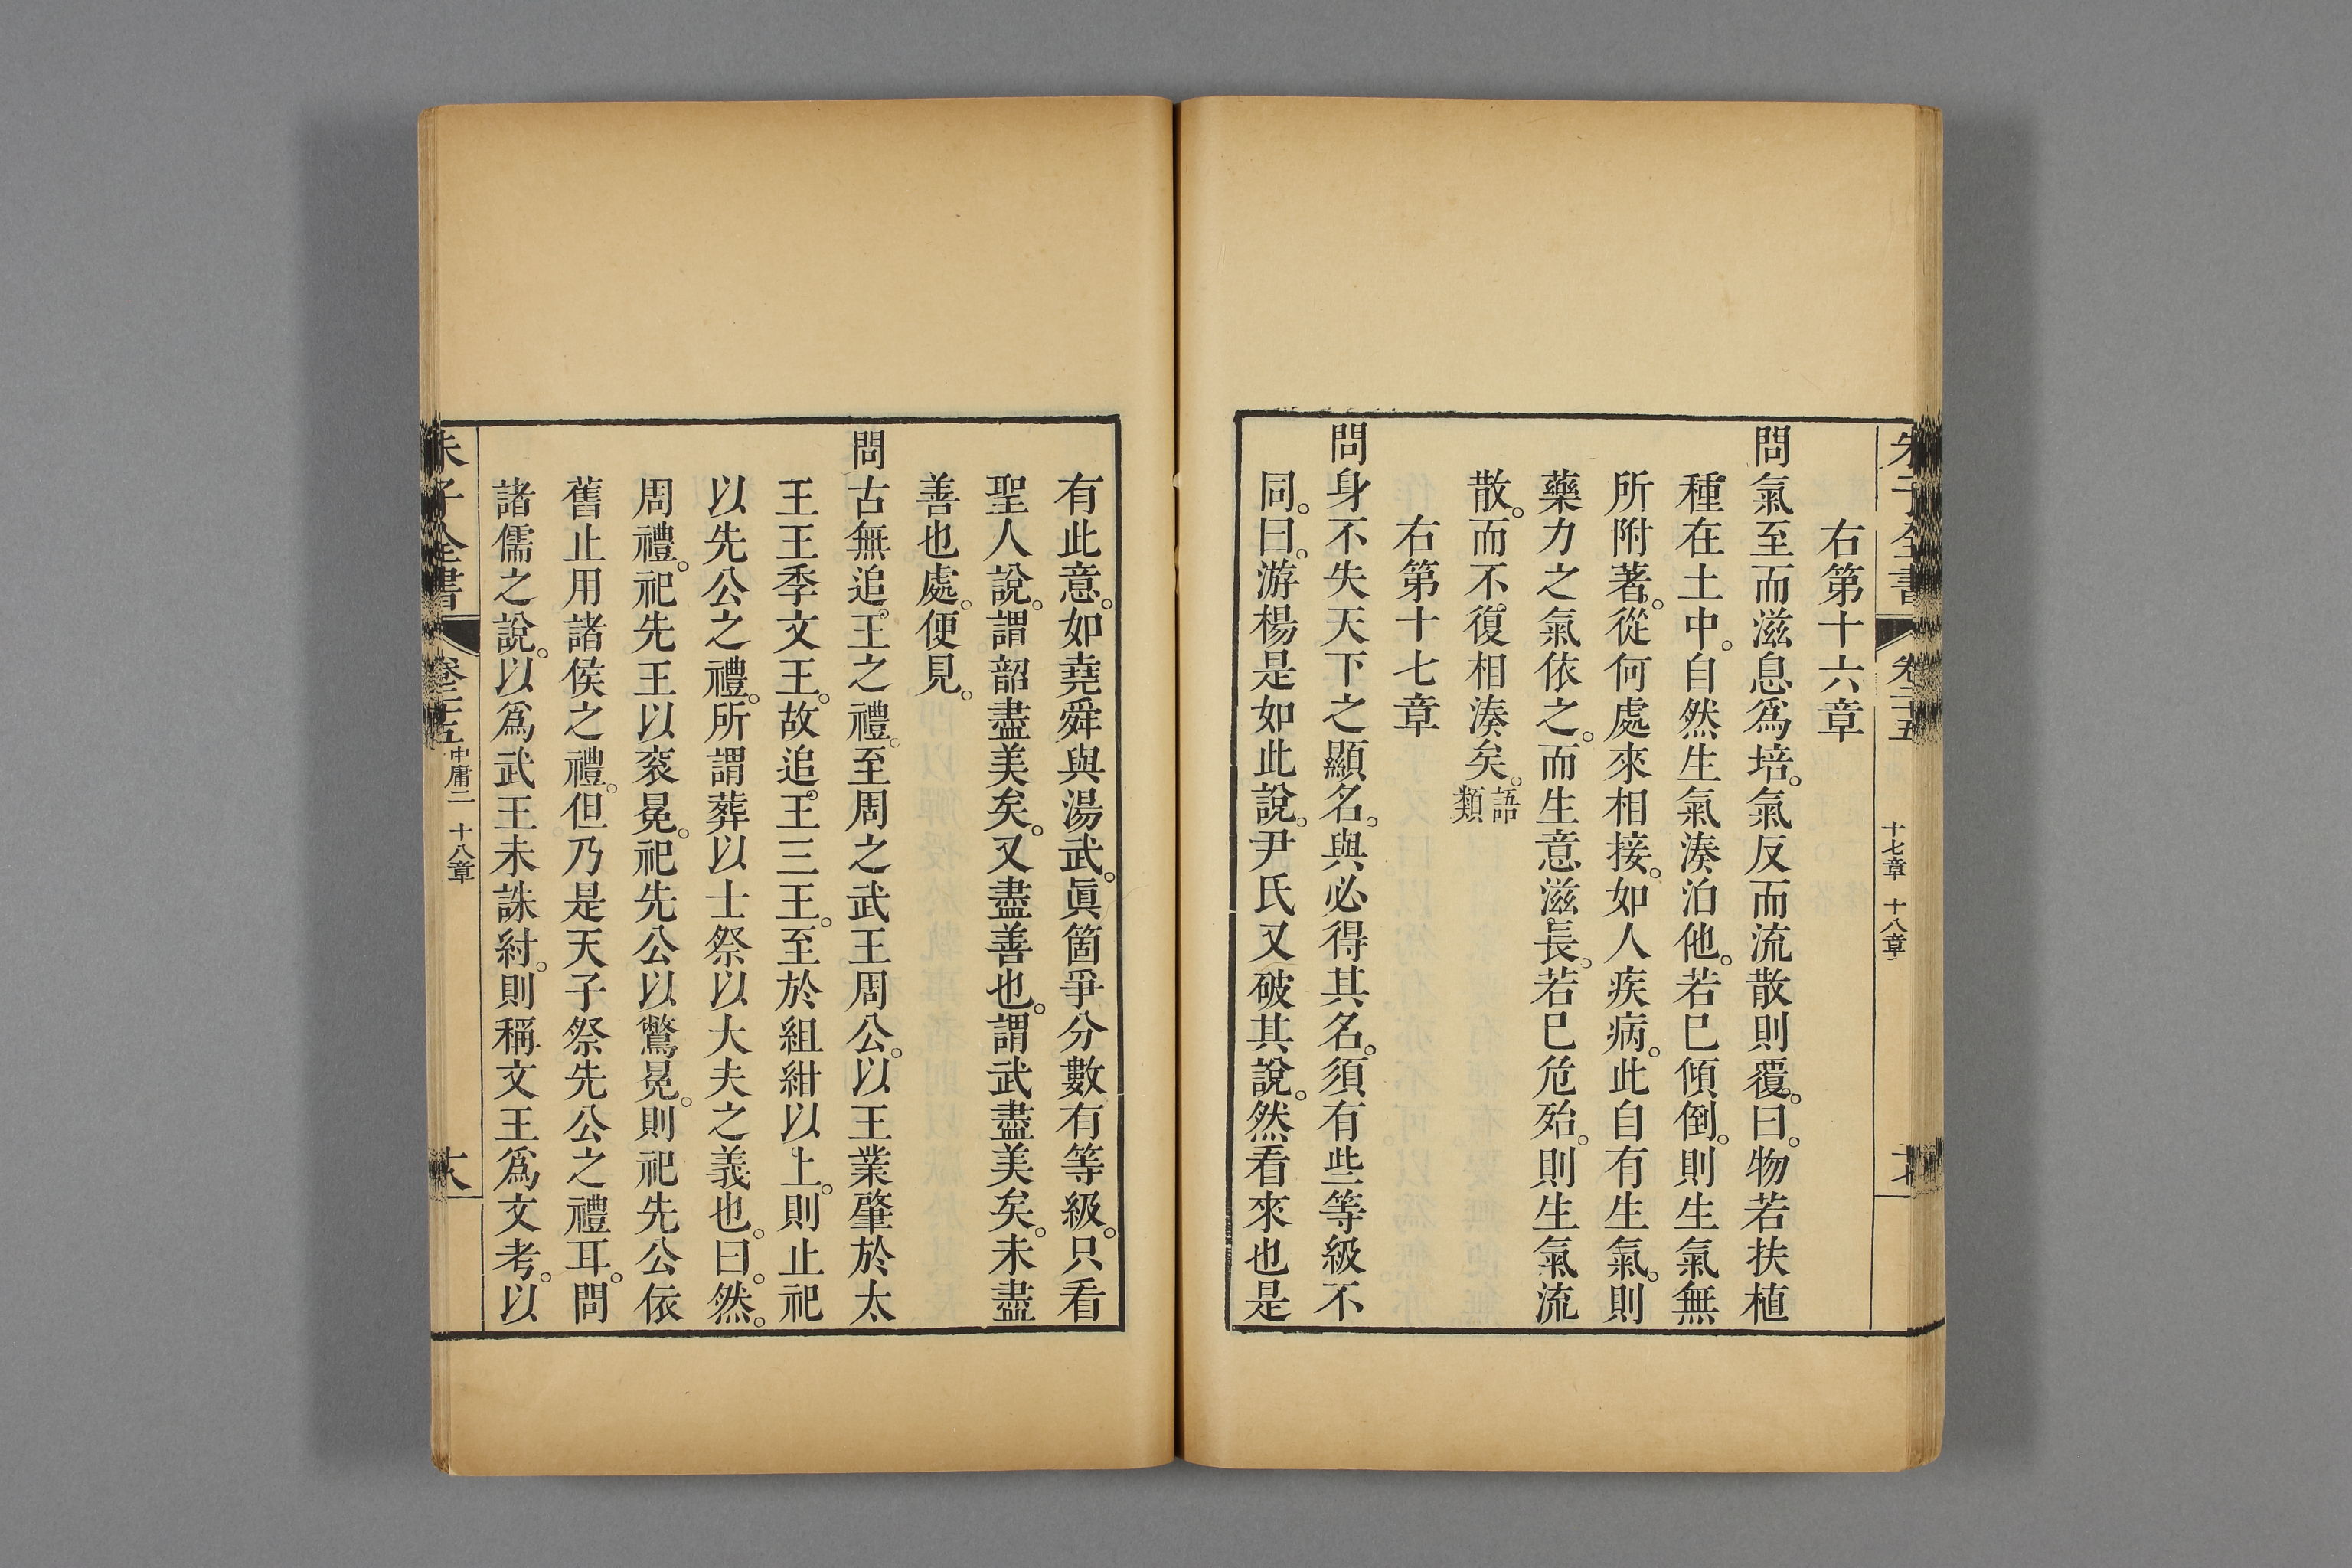 朱子全書 卷二十五 十七章 十八章
右第十六章
問氣至而滋息爲培。氣反而流散則覆。曰。物若扶植
種在土中。自然生氣湊泊他。若已傾倒。則生氣無
所附著。從何處來相接。如人疾病。此自有生氣。則
藥力之氣依之。而生意滋長。若已危殆。則生氣流
散。而不復相湊矣。語類
右第十七章
問身不失天下之顯名。與必得其名。須有些等級不
同。曰。游楊是如此說。尹氏又破其說。然看來也是
有此意。如堯舜與湯武。眞箇爭分數有等級。只看
聖人說。謂韶盡美矣。又盡善也。謂武盡美矣。未盡
善也處。便見。
問古無追王之禮。至周之武王周公。以王業肇於太
王王季文王。故追王三王。至於組紺以上。則止祀
以先公之禮。所謂葬以士祭以大夫之義也。曰。然。
周禮。祀先王以袞冕。祀先公以鷩冕。則祀先公依
舊止用諸侯之禮。但乃是天子祭先公之禮耳。問
諸儒之說。以爲武王未誅紂。則稱文王爲文考。以
朱子全書 卷二十五 中庸二 十八章